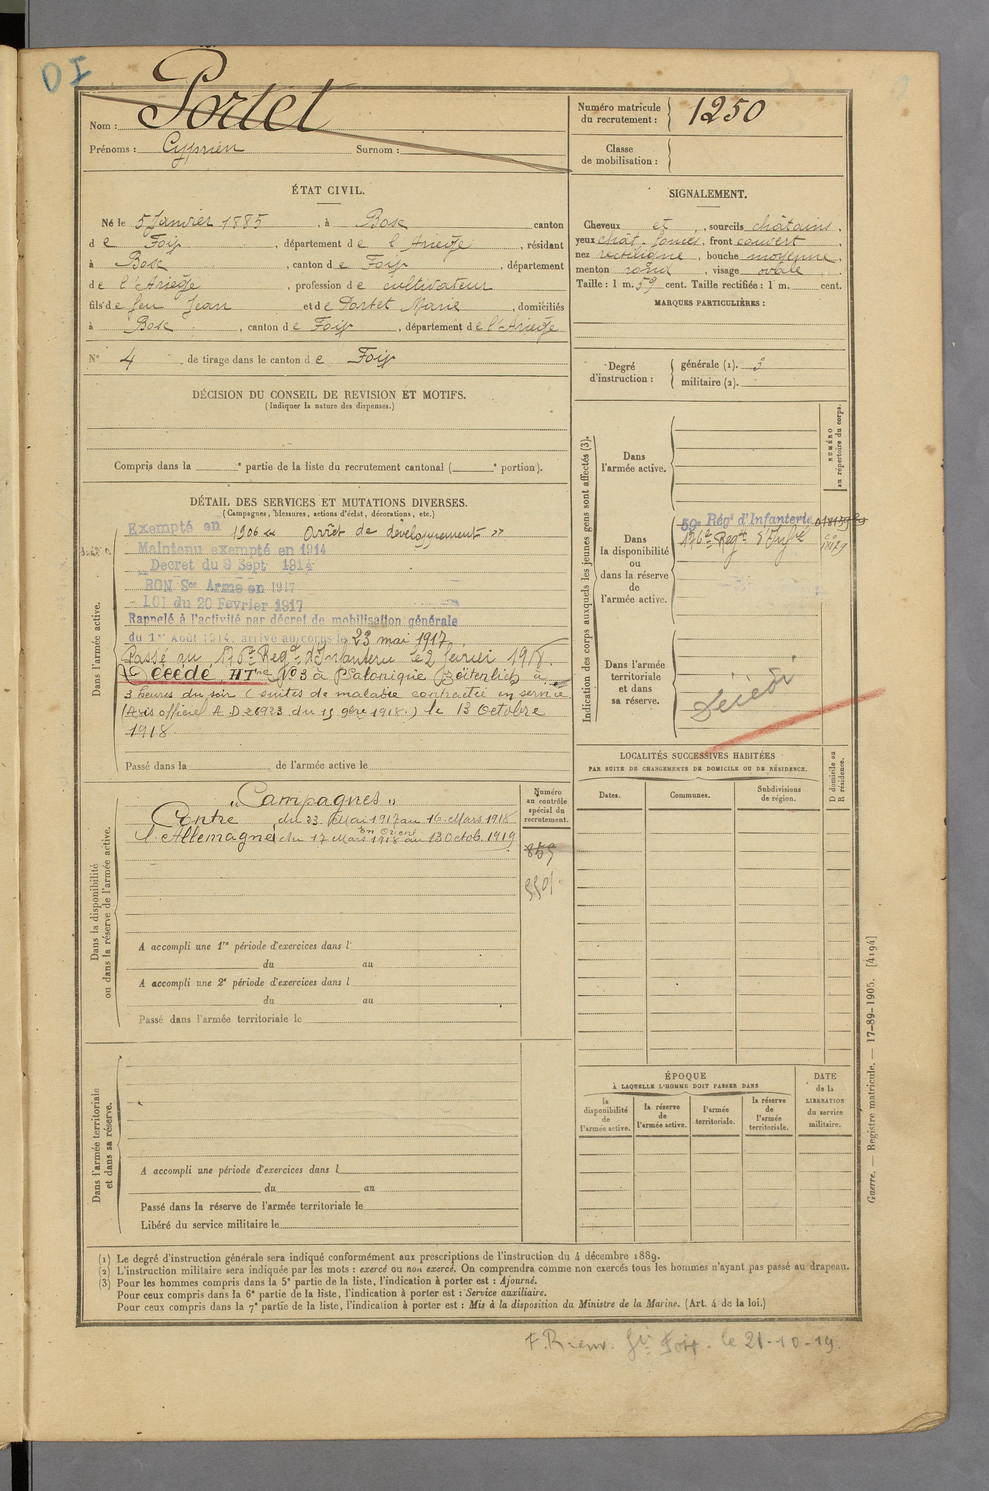 OI
Nom : Portet
Prénoms : Cyprien Surnom :
Numéro matricule du recrutement : 1250
Classe de mobilisation :
ÉTAT CIVIL.
Né le 5 Janvier 1885, à Bosc canton
de Foix, département de l'Ariège, résidant
à Bosc, canton de Foix, département
de l'Ariège, profession de cultivateur
fils de feu Jean et de Portet Marie, domiciliés
à Bosc, canton de Foix, département de l'Ariège
N° 4 de tirage dans le canton de Foix
SIGNALEMENT.
Cheveux et, sourcils châtains,
yeux chât. foncés, front couvert,
nez rectiligne, bouche moyenne,
menton rond, visage ovale.
Taille : 1 m. 59 cent. Taille rectifiée : 1 m. cent.
MARQUES PARTICULIÈRES :
Degré d'instruction : générale (1). 3
militaire (2).
DÉCISION DU CONSEIL DE REVISION ET MOTIFS.
(Indiquer la nature des dispenses.)
Compris dans la e partie de la liste du recrutement cantonal ( e portion).
DÉTAIL DES SERVICES ET MUTATIONS DIVERSES.
(Campagnes, blessures, actions d'éclat, décorations, etc.)
Dans l'armée active.
Exempté en 1906 « Arrêt de développement »
Maintenu exempté en 1914
Decret du 9 Sept 1914
BON Sce Armé en 1917
LOI du 20 Fevrier 1917
Rappelé à l'activité par décret de mobilisation générale
du 1er Août 1914, arrivé au corps le 23 mai 1917
Passé au 176e Regt d'Infanterie le 2 février 1918.
Décédé, HTre N°3 à Salonique Zeitenlick à
3 heures du soir (suites de maladie contractée en service
(Avis officiel A D 26923 du 15 9bre 1918.) le 13 Octobre
1918
Passé dans la de l'armée active le
Indication des corps auxquels les jeunes gens sont affectés (3).
NUMÉRO au répertoire du corps.
Dans l'armée active.
Dans la disponibilité ou dans la réserve de l'armée active.
59e Régt d'Infanterie
176e Regt d'Infrie
Dans l'armée territoriale et dans sa réserve.
Décédé
LOCALITÉS SUCCESSIVES HABITÉES
PAR SUITE DE CHANGEMENTS DE DOMICILE OU DE RÉSIDENCE.
D domicile ou R résidence.
Dates. Communes. Subdivisions de région.
Dans la disponibilité ou dans la réserve de l'armée active.
Numéro au contrôle spécial du recrutement.
859
"Campagnes"
Contre du 23 Mai 1917 au 16 Mars 1918
En Orient
l'Allemagne du 17 Mars 1918 au 13 Octob. 1919
A accompli une 1re période d'exercices dans l
du au
A accompli une 2e période d'exercices dans l
du au
Passé dans l'armée territoriale le
Dans l'armée territoriale et dans sa réserve.
A accompli une période d'exercices dans l
du au
Passé dans la réserve de l'armée territoriale le
Libéré du service militaire le
ÉPOQUE
À LAQUELLE L'HOMME DOIT PASSER DANS
la disponibilité de l'armée active. la réserve de l'armée active. l'armée territoriale. la réserve de l'armée territoriale.
DATE de la LIBERATION du service militaire.
Guerre. — Registre matricule. — 17-89-1905. [4194]
(1) Le degré d'instruction générale sera indiqué conformément aux prescriptions de l'instruction du 4 décembre 1889.
(2) L'instruction militaire sera indiquée par les mots : exercé ou non exercé. On comprendra comme non exercés tous les hommes n'ayant pas passé au drapeau.
(3) Pour les hommes compris dans la 5e partie de la liste, l'indication à porter est : Ajourné.
Pour ceux compris dans la 6e partie de la liste, l'indication à porter est : Service auxiliaire.
Pour ceux compris dans la 7e partie de la liste, l'indication à porter est : Mis à la disposition du Ministre de la Marine. (Art. 4 de la loi.)
Foix. le 21-10-19.